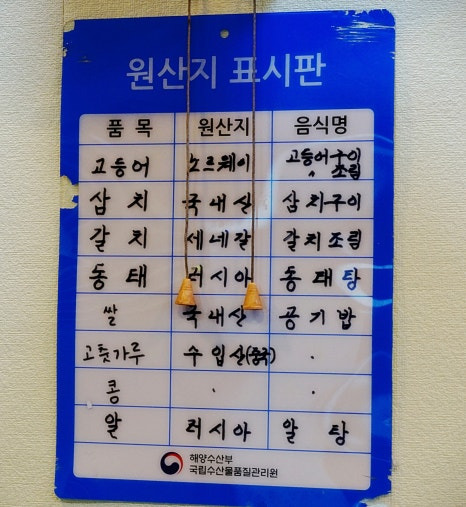 원산지 표시판
품 목 원산지 음식명
고등어 노르웨이 고등어구이
조림
삼치 국내산 삼치구이
갈치 세네갈 갈치조림
동태 러시아 동태탕
쌀 국내산 공기밥
고춧가루 수입산(중국) .
콩 . .
알 러시아 알 탕
해양수산부
국립수산물품질관리원